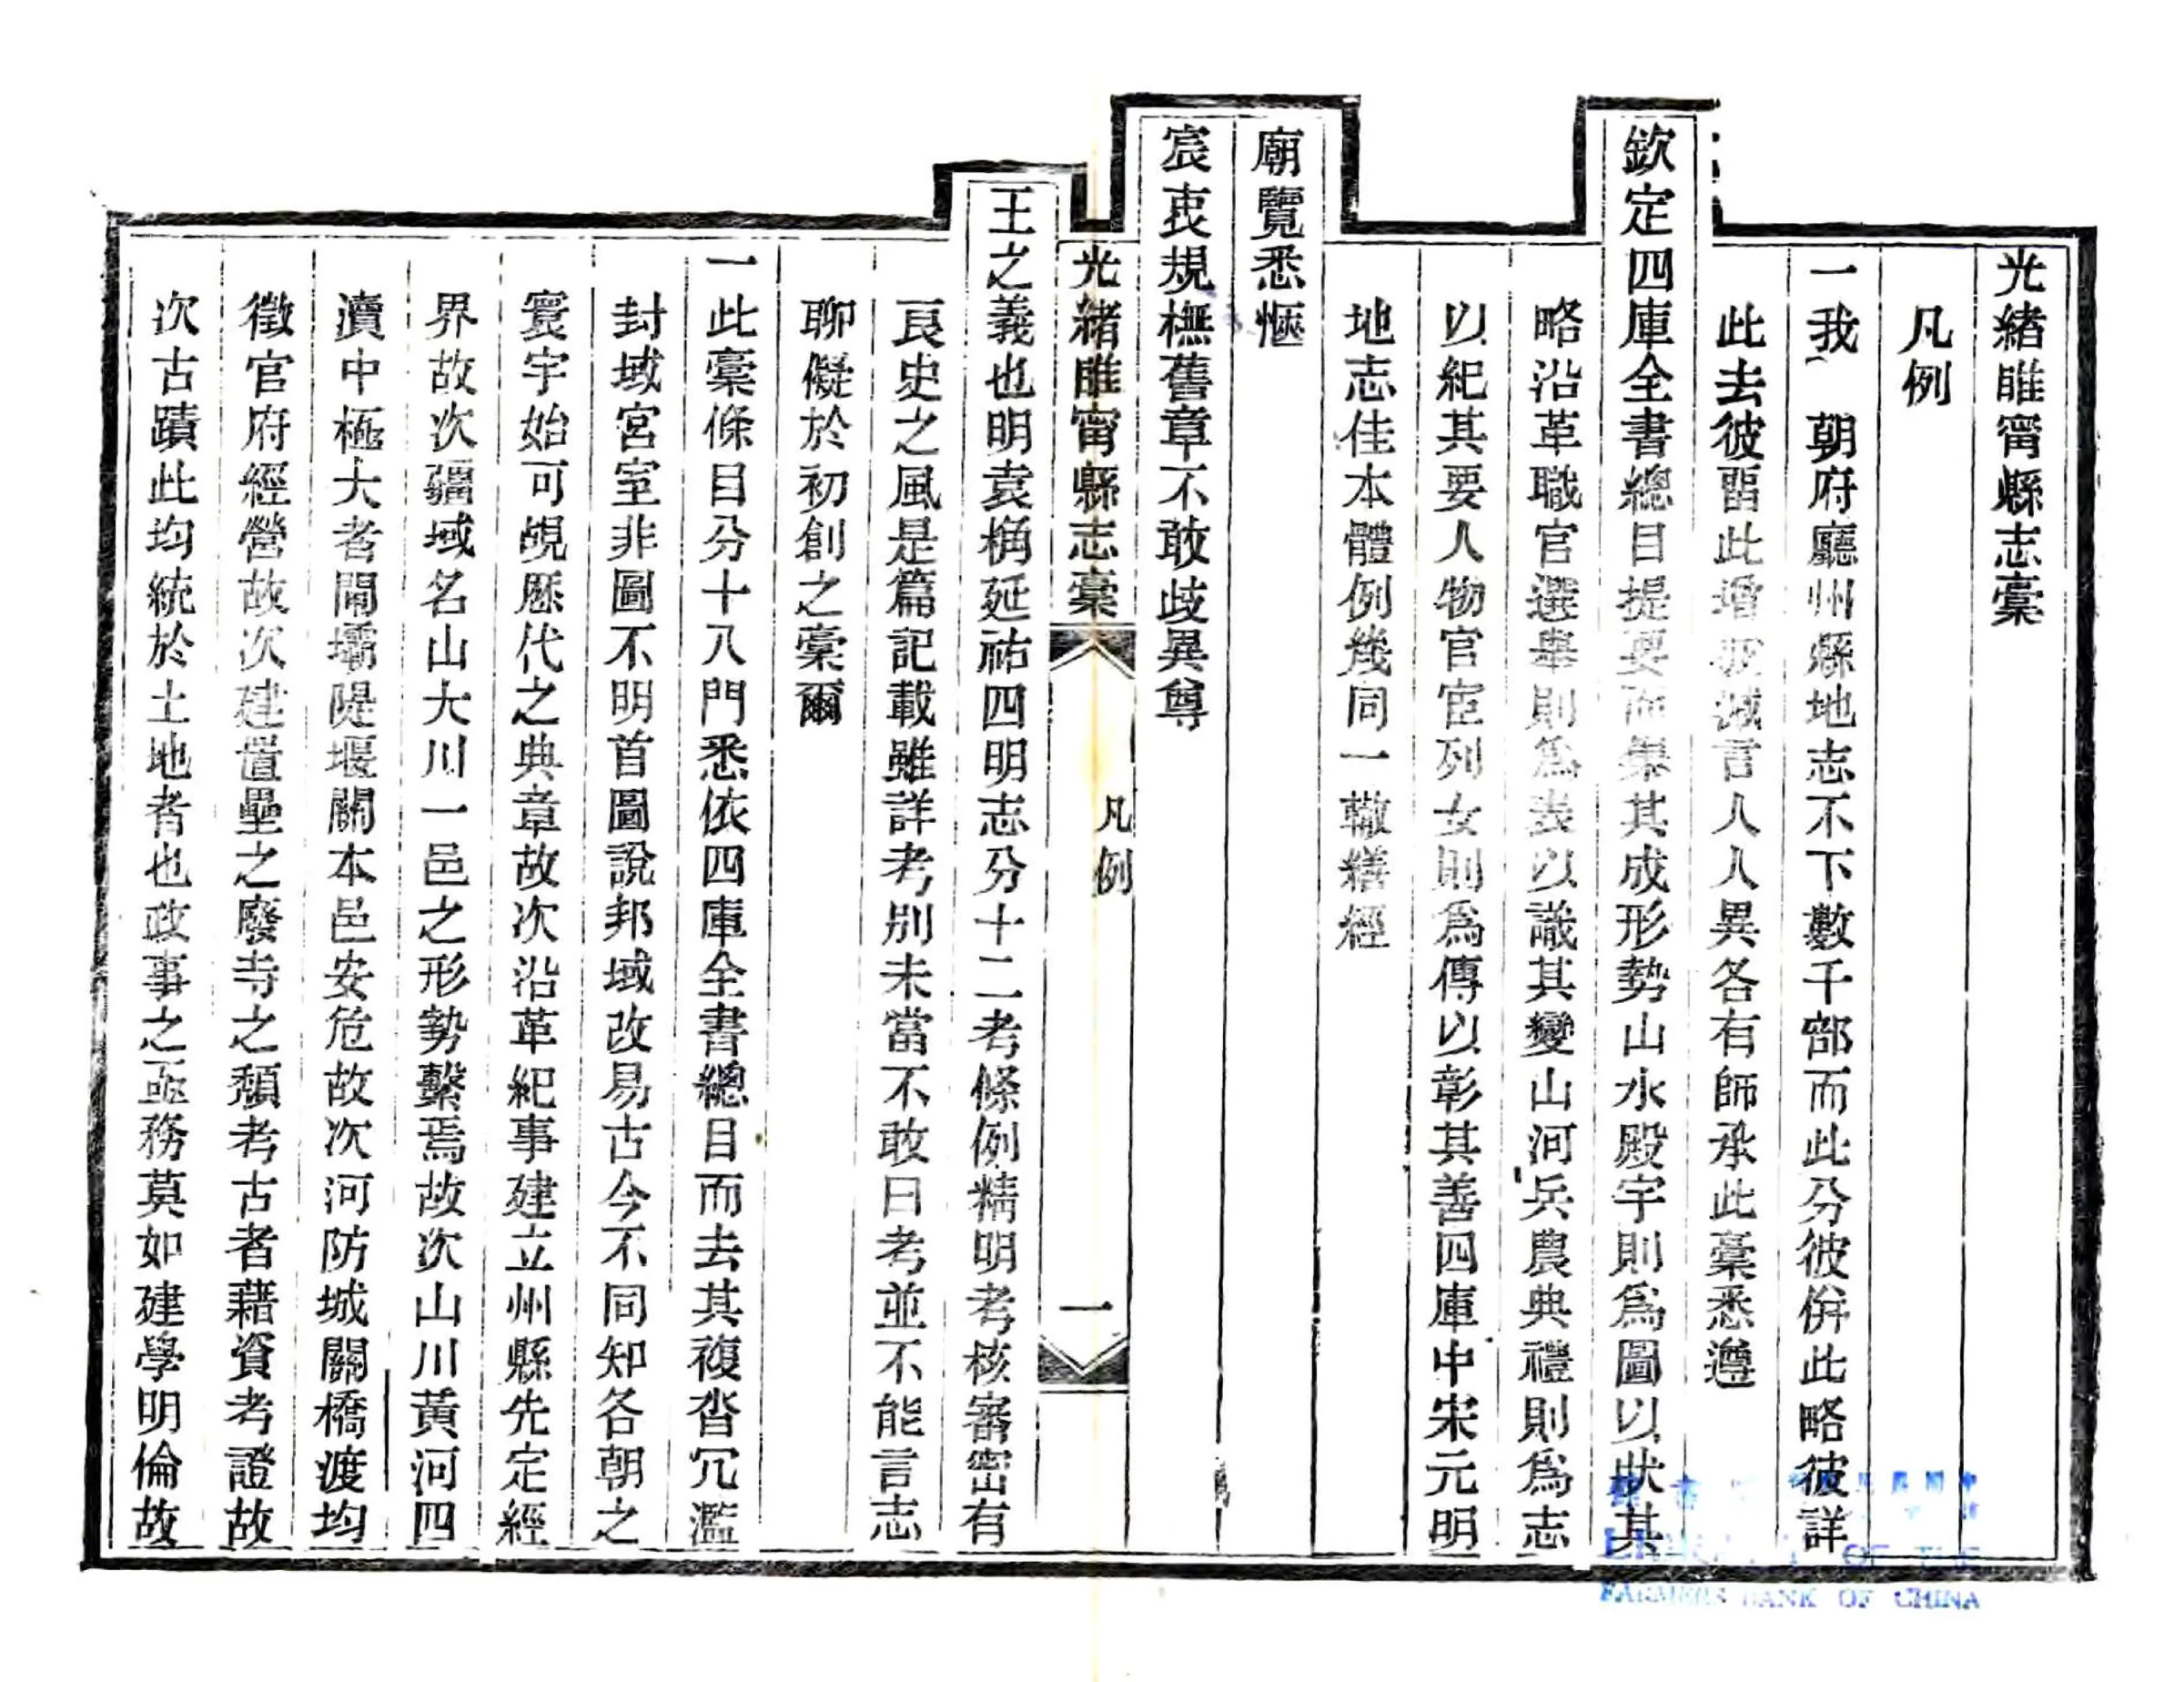 光緒睢甯縣志稾
凡例
一我 朝府廳州縣地志不下數千部而此分彼併此略彼詳
此去彼畱此增彼減言人人異各有師承此稾悉遵
欽定四庫全書總目提要而集其成形勢山水殿宇則爲圖以狀其
略沿革職官選舉則爲表以識其變山河兵農典禮則爲志
以紀其要人物官宦列女則爲傳以彰其善四庫中宋元明
地志佳本體例幾同一轍繕經
廟覽悉愜
宸衷規橅舊章不敢歧異尊
光緒睢甯縣志稾 凡例 一
王之義也明袁桷延祐四明志分十二考條例精明考核審密有
良史之風是篇記載雖詳考別未當不敢曰考並不能言志
聊儗於初創之稾爾
一此稾條目分十八門悉依四庫全書總目而去其複沓冗濫
封域宮室非圖不明首圖說邦域改易古今不同知各朝之
寰宇始可覘歷代之典章故次沿革紀事建立州縣先定經
界故次疆域名山大川一邑之形勢繫焉故次山川黃河四
瀆中極大者閘壩隄堰關本邑安危故次河防城關橋渡均
徵官府經營故次建置壘之廢寺之頹考古者藉資考證故
次古蹟此均統於土地者也政事之亟務莫如建學明倫故
FARMERS BANK OF CHINA